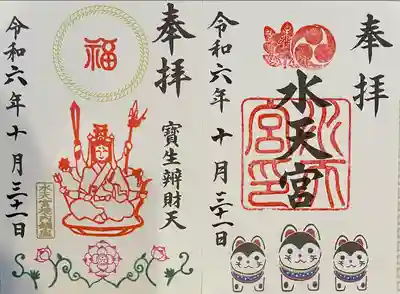 奉拝
水天宮
水天宮印
令和六年十月三十一日
奉拝
寶生辨財天
福
令和六年十月三十一日